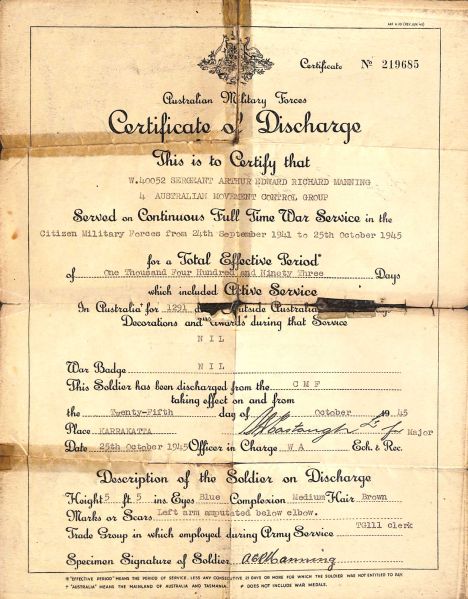 AAF A 30 (REV JUN 45)
Certificate Nº 219685
Australian Military Forces
Certificate of Discharge
This is to Certify that
W.40052 SERGEANT ARTHUR EDWARD RICHARD MANNING
4 AUSTRALIAN MOVEMENT CONTROL GROUP
Served on Continuous Full Time War Service in the
Citizen Military Forces from 24th September 1941 to 25th October 1945
for a Total Effective Period*
of One Thousand Four Hundred and Ninety Three Days
which included Active Service
In Australia† for 1291 outside Australia
Decorations and Awards during that Service
NIL
War Badge NIL
This Soldier has been discharged from the CMF
taking effect on and from
the Twenty-Fifth day of October 1945
Place KARRAKATTA Lt for Major
Date 25th October 1945 Officer in Charge WA Ech. & Rec.
Description of the Soldier on Discharge
Height 5 ft. 5 ins. Eyes Blue Complexion Medium Hair Brown
Marks or Scars Left arm amputated below elbow.
Trade Group in which employed during Army Service TG111 clerk
Specimen Signature of Soldier AER Manning
* "EFFECTIVE PERIOD" MEANS THE PERIOD OF SERVICE, LESS ANY CONSECUTIVE 21 DAYS OR MORE FOR WHICH THE SOLDIER WAS NOT ENTITLED TO PAY.
† "AUSTRALIA" MEANS THE MAINLAND OF AUSTRALIA AND TASMANIA. ‡ DOES NOT INCLUDE WAR MEDALS.